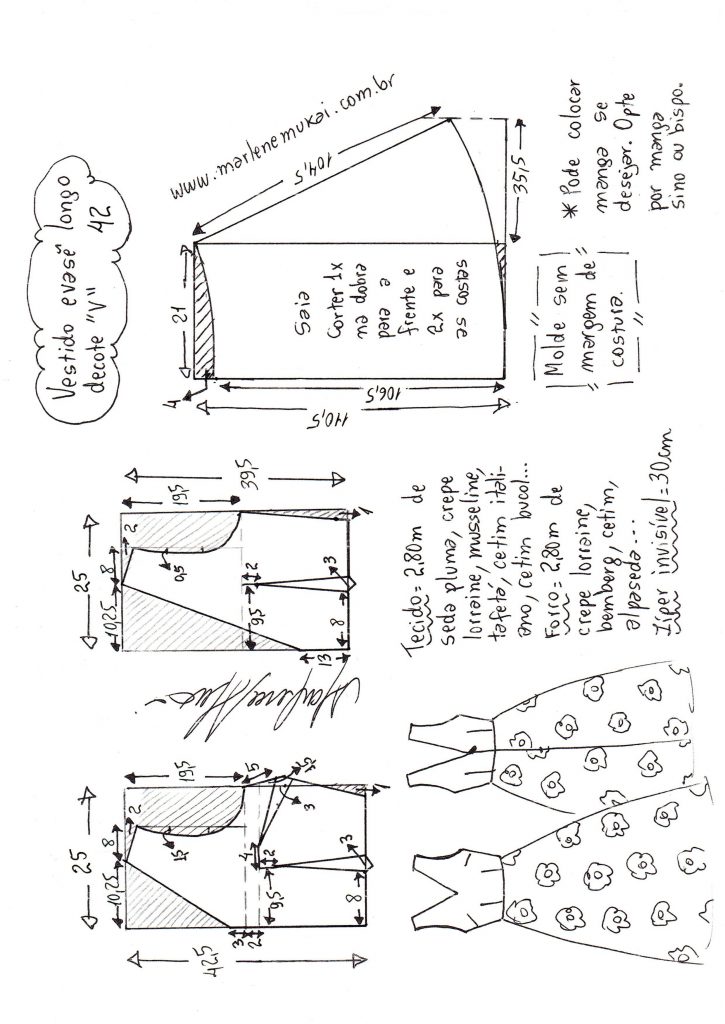 Vestido evasê longo
decote "V" 42
www.marlenemukai.com.br
104,5
21
4
110,5
106,5
35,5
Saia
Corter 1x
na dobra
para a
frente e
2x para
as costas
* Pode colocar
manga se
desejar. Opte
por manga
sino ou bispo.
Molde sem
margem de
costura.
25
10,25
8
2
19,5
39,5
0,5
9,5
2
3
8
13
1
25
10,25
8
2
19,5
42,5
1,5
5
3
4
2
9,5
3
2
3
8
1
Tecido= 2,80m de
seda pluma, crepe
lorraine, musseline,
tafetá, cetim itali-
ano, cetim bucol...
Forro= 2,80m de
crepe lorraine,
bemberg, cetim,
alpaseda...
Zíper invisível=30cm